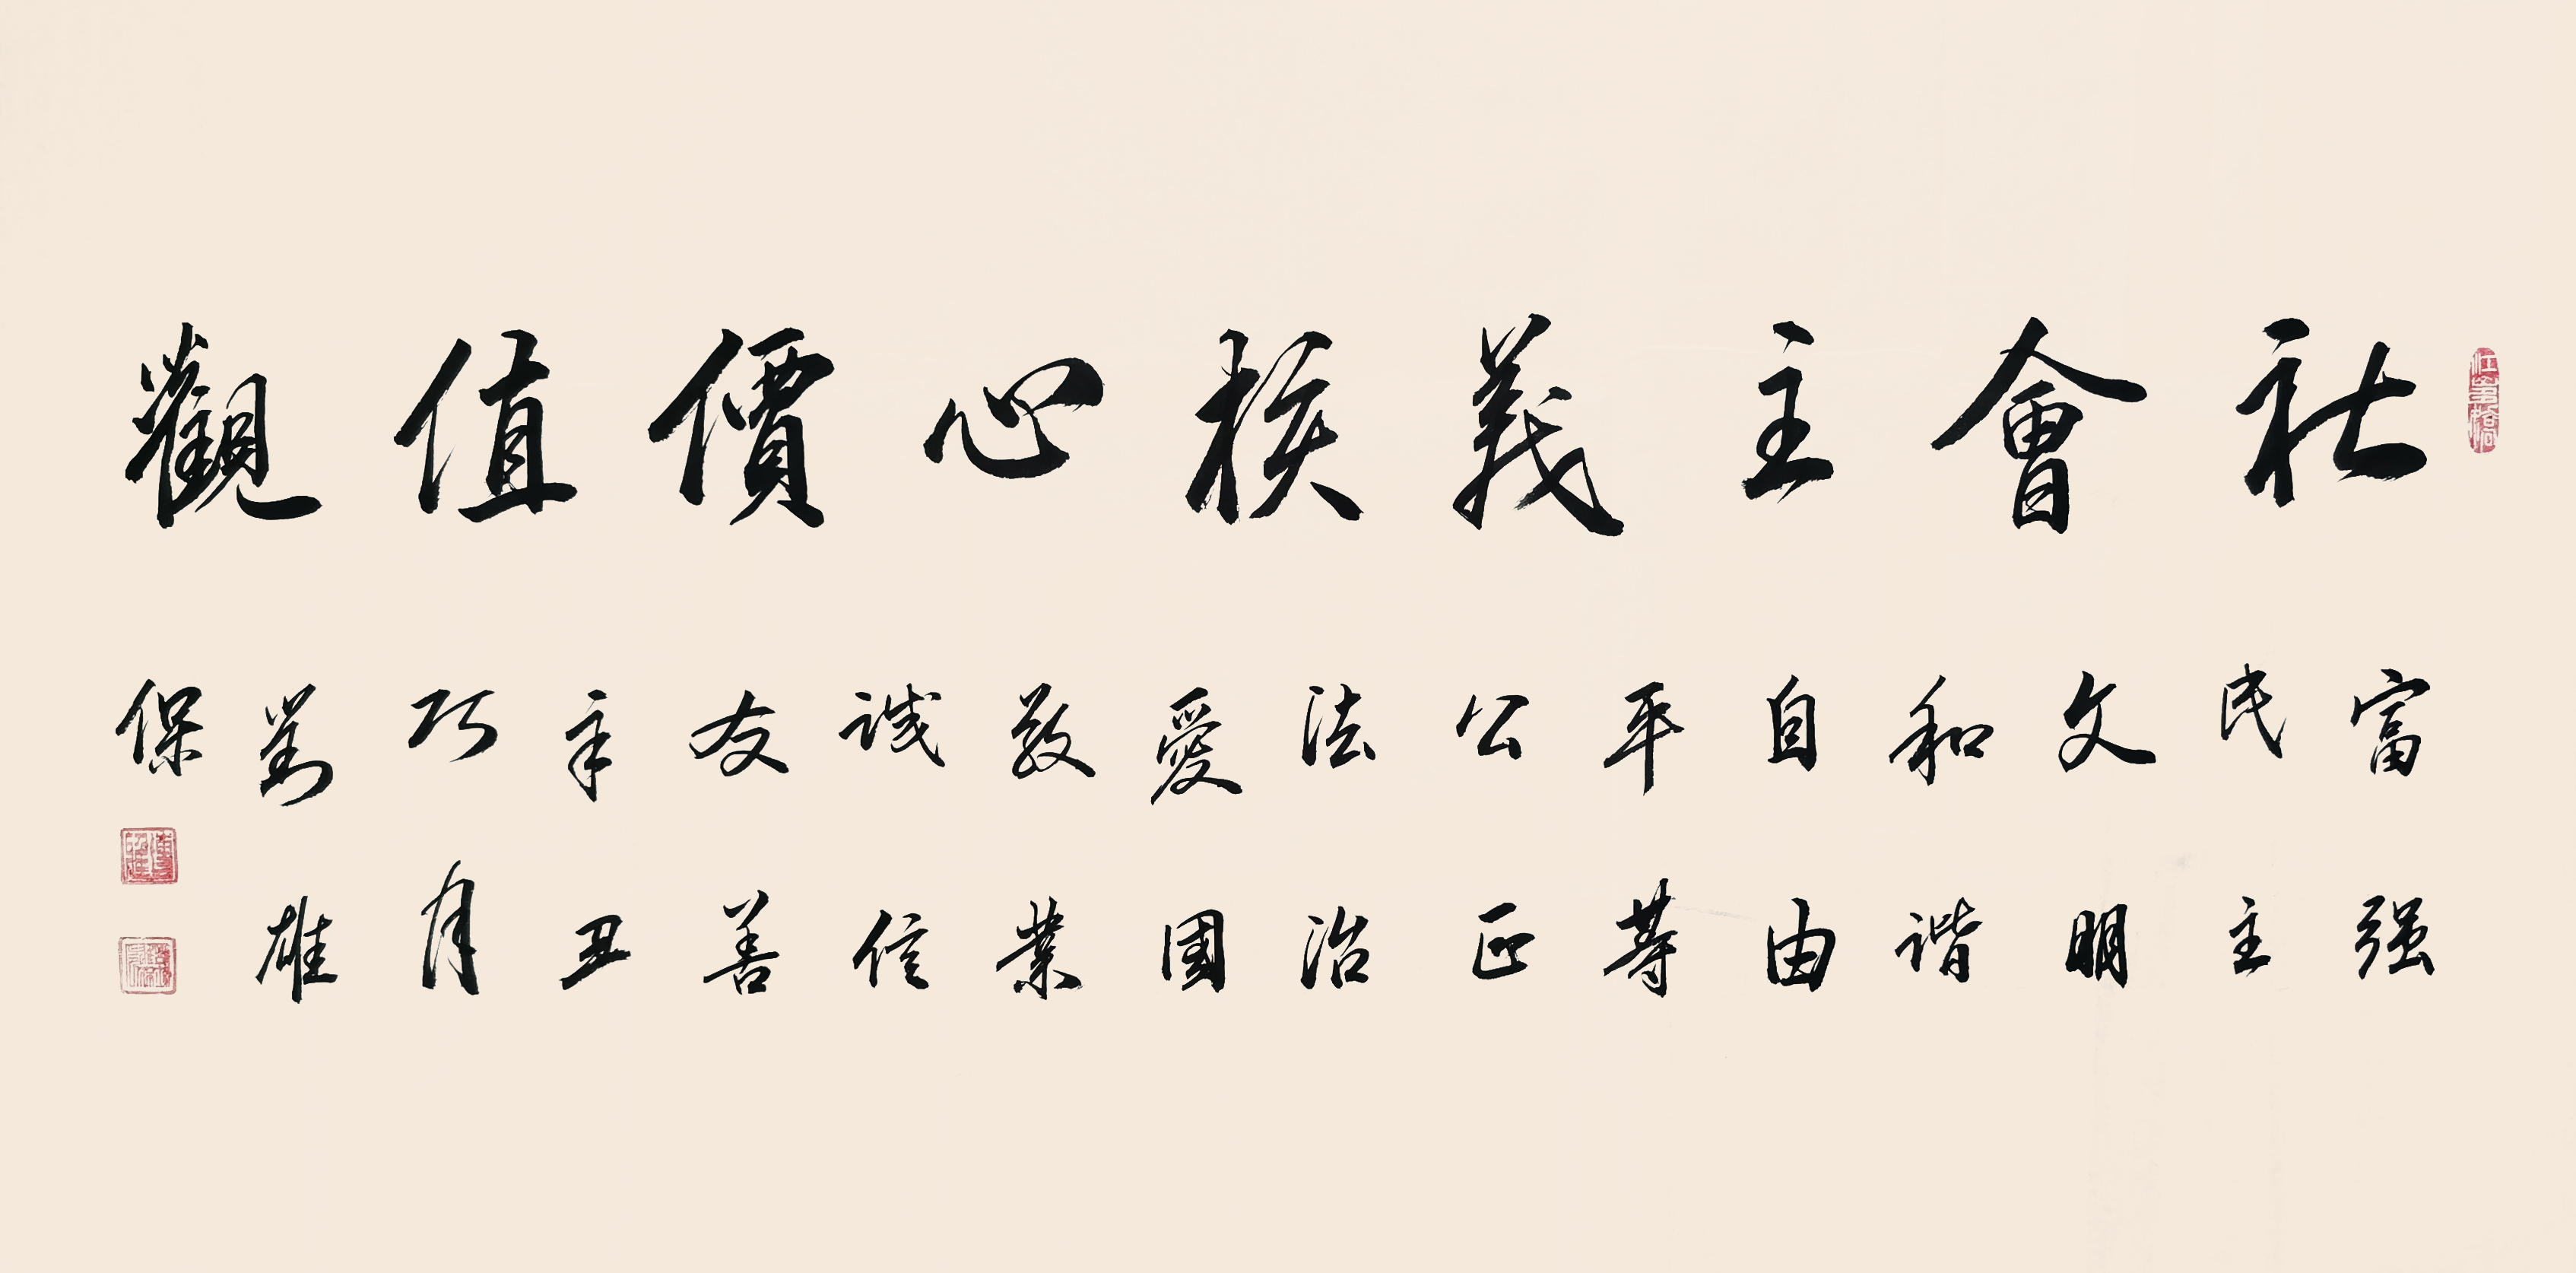 社會主義核心價值觀
富强
民主
文明
和谐
自由
平等
公正
法治
愛國
敬業
诚信
友善
辛丑
巧月
劉雄
保